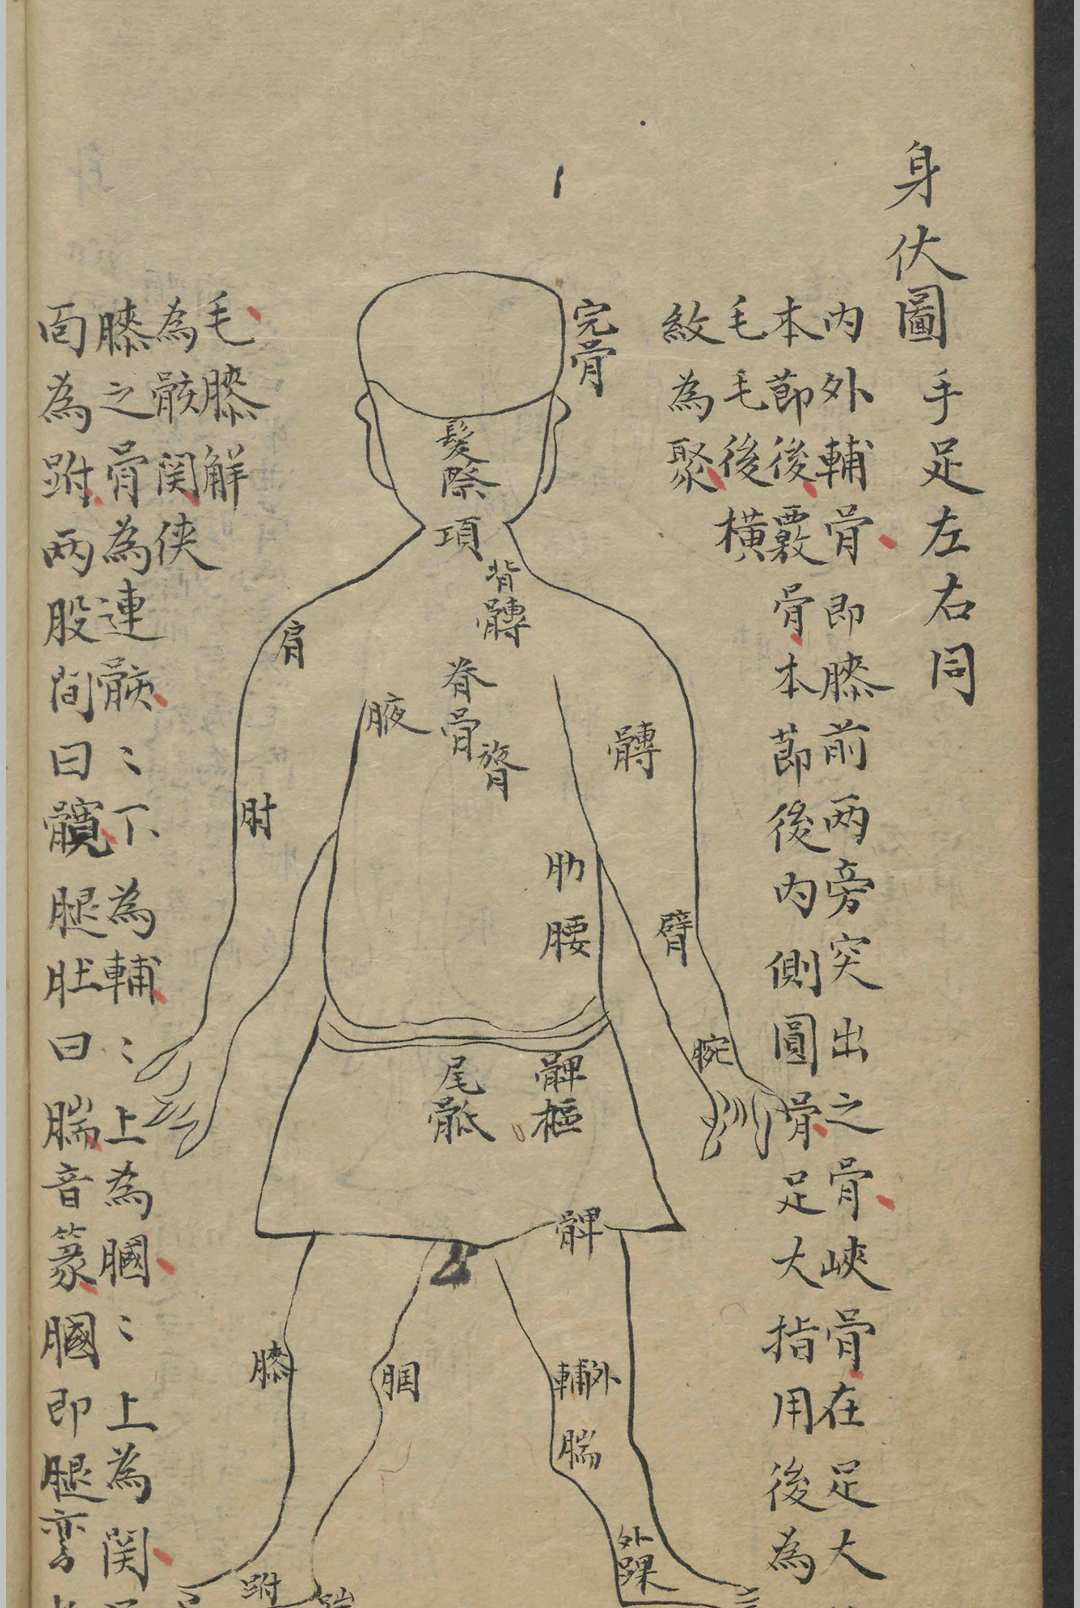 身伏圖手足左右同
内外輔骨即膝前两旁突出之骨峽骨在足大
本節後覈骨本節後内側圓骨足大指用後為
毛毛後橫
紋為聚
完骨
髮際
項
背髆
脊骨
膂
肩
腋
髆
肘
肋
腰
臂
腕
尾骶
髀樞
髀
膝
腘
外輔
腨
外踝
跗
毛膝解
為骸関侠
膝之骨為連骸〻下為輔〻上為膕〻上為関
面為跗两股間曰髖腿肚曰腨音篆膕即腿弯